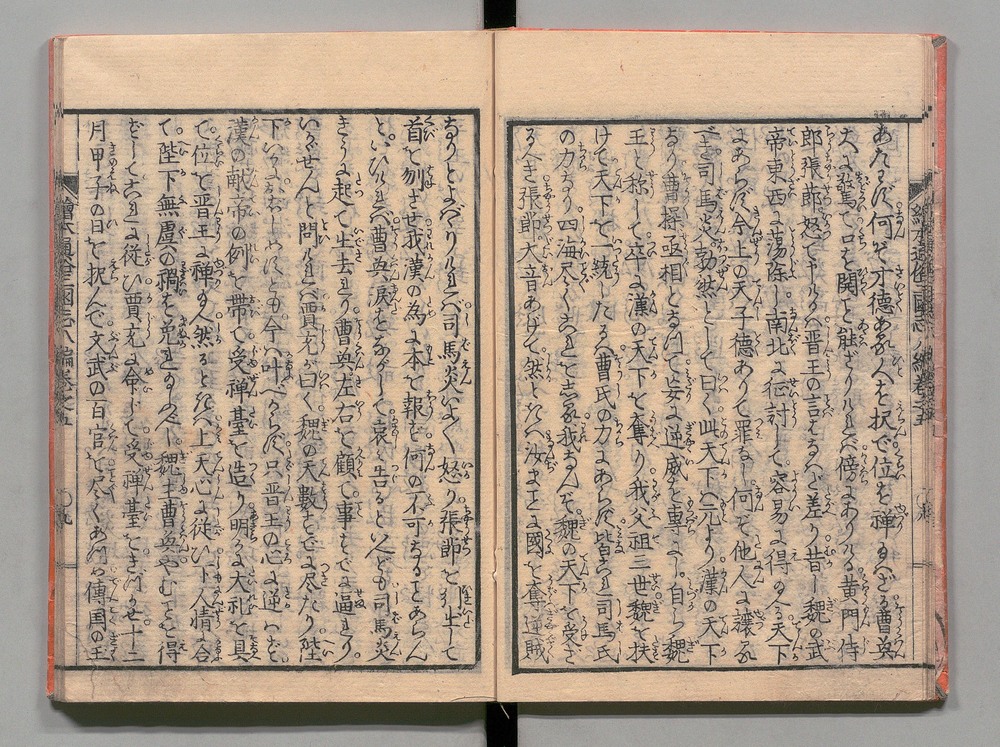 あらんや何ぞ才徳ある人を択で位を禅らざる曹奐
大に驚て口を開こと能ざりければ傍にありける黄門侍
郎張節怒て申けるハ晋王の言るゝハ差り昔し魏の武
帝東西を蕩除し南北を征討して容易に得給ふ天下
にあらだ今上の天子徳ありて罪なし何ぞ他人に譲ん
や司馬炎勃然として曰く此天下ハ元より漢の天下
なり曹操丞相となりて妄に逆威を専にし自ら魏
王と称して卒に漢の天下を奪り我父祖三世魏を扶
けて天下を一統したる曹氏の力にあらだ皆これ司馬氏
の力なり四海尽くこれを知る我なんぞ魏の天下を受ざ
るべき張節大音あげて然らバ汝ハこれ国を奪逆賊
なりとよバりければ司馬炎いよ〳〵怒り張節を引出して
首を刎させ我漢の為に本を報ず何の不可なることあらん
といひければ曹奐涙をながして哀を告るといへども司馬炎
きかず起て出去けり曹奐左右を顧て事すでに逼れり
いかゞせんと問ければ賈充が曰く魏の天数すでに尽たり陛
下いかにおぼしめすとも今ハ叶べからだ只晋王の心に逆ハず
漢の献帝の例を帯て受禅台を造り明かに大礼を具
て位を晋王に禅り給へ然るときハ上天心に従ひ下人情に合
て陛下無虞の禍を免れ給ふべし魏主曹奐やむことを得
ずしてこれに従ひ賈充に命じて受禅台をきづかせ十二
月甲子の日を択んで文武の百官を尽くあつめ伝国の玉
繪本通俗三國志八編巻之五
繪本通俗三國志八編巻之五
〇九